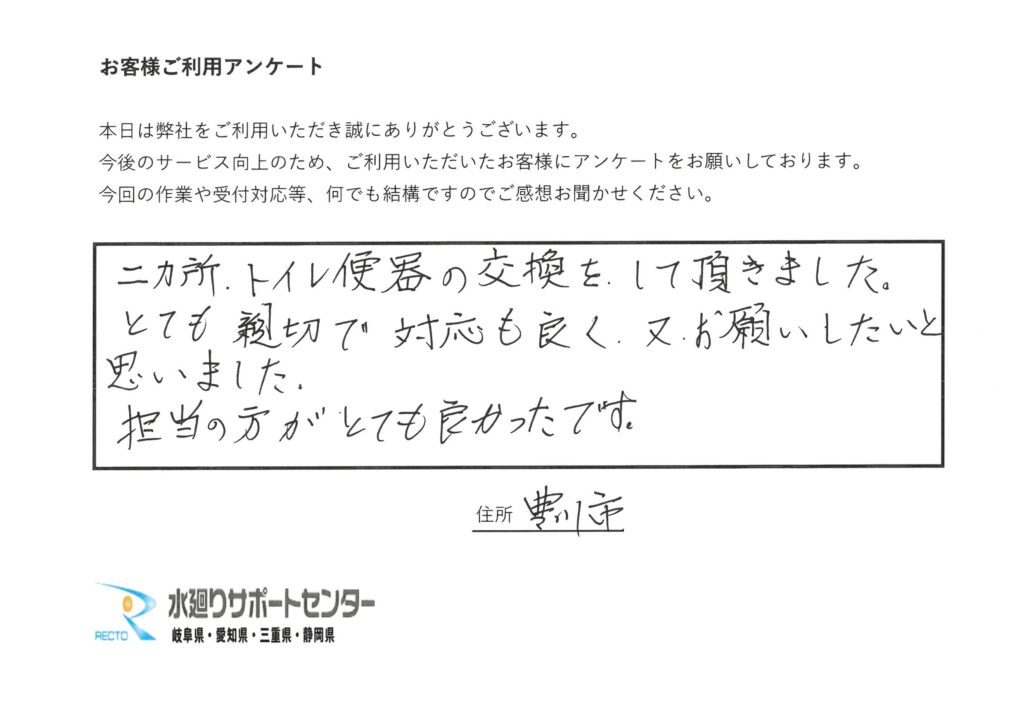 お客様ご利用アンケート
本日は弊社をご利用いただき誠にありがとうございます。
今後のサービス向上のため、ご利用いただいたお客様にアンケートをお願いしております。
今回の作業や受付対応等、何でも結構ですのでご感想お聞かせください。
二カ所.トイレ便器の交換を.して頂きました。
とても親切で対応も良く.又.お願いしたいと
思いました.
担当の方がとても良かったです。
住所 豊川市
RECTO
水廻りサポートセンター
岐阜県・愛知県・三重県・静岡県